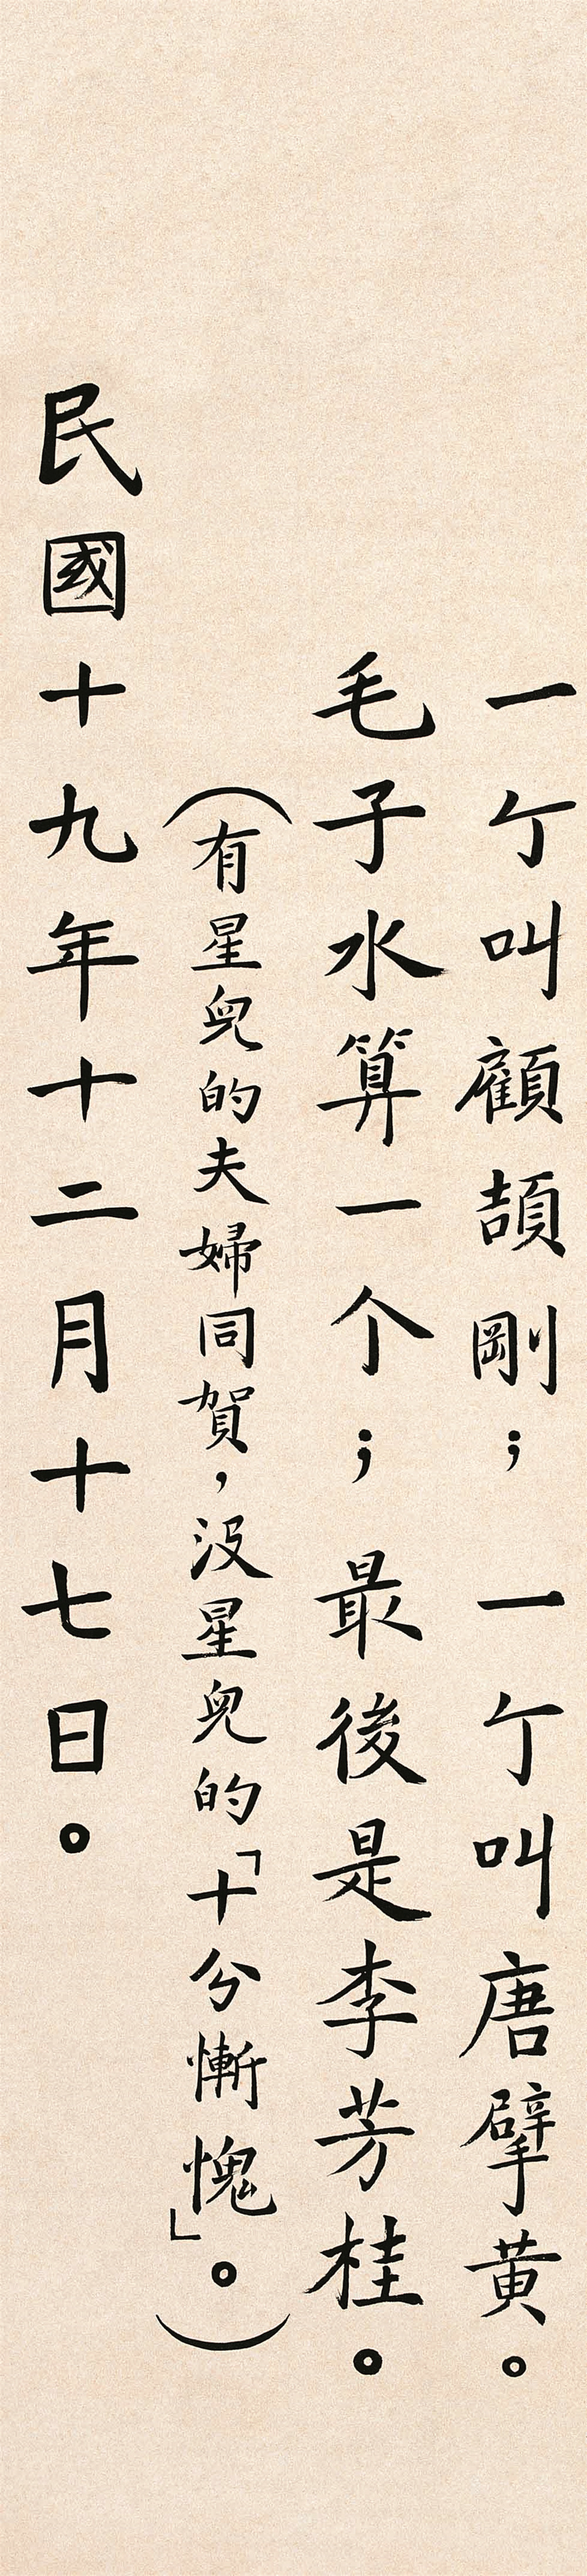 一亇叫顧頡剛；一亇叫唐擘黄。
毛子水算一个；最後是李芳桂。
（有星兒的夫婦同賀，沒星兒的「十分慚愧」。）
民國十九年十二月十七日。